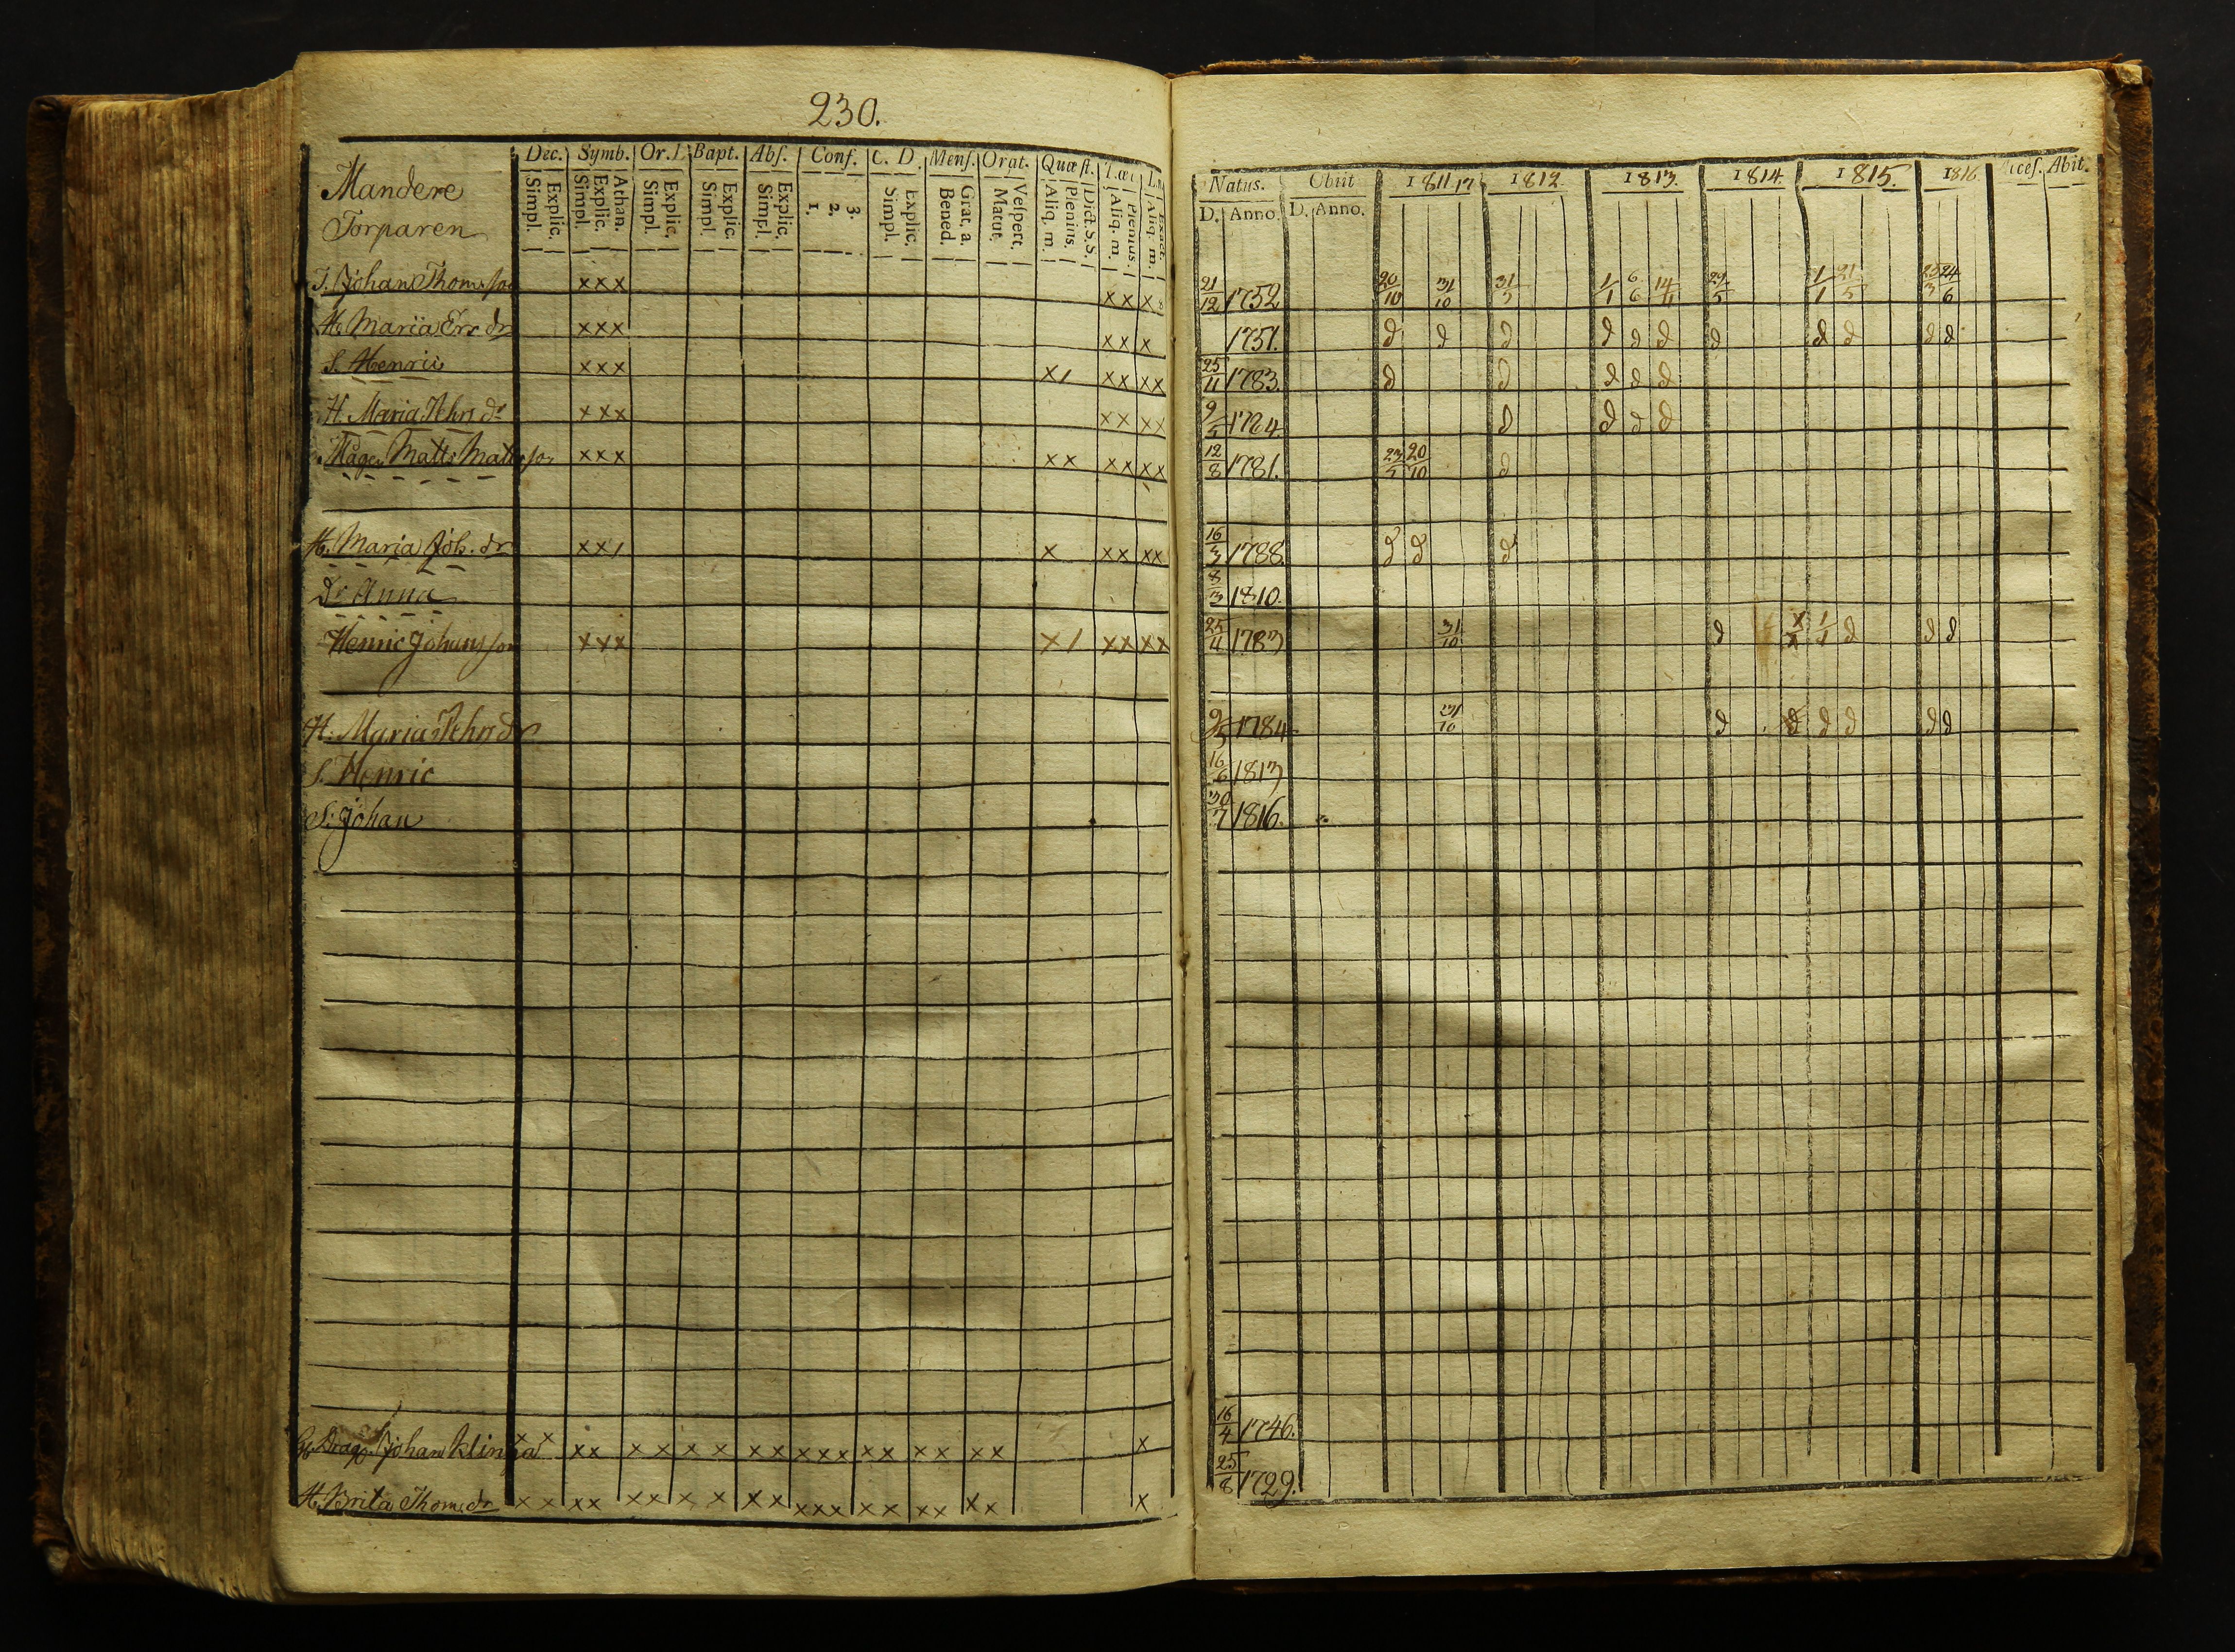 230.
Mandere
Torparen
Dec. Symb. Or. D. Bapt. Abs. Conf. C. D. Mens. Orat. Quæst.
Simpl. Explic. Simpl. Explic. Athan. Simpl. Explic. Simpl. Explic. Simpl. Explic. 1. 2. 3. Simpl. Explic. Bened. Grat. a. Matut. Vespert. Aliq. m. Plenius. Dict. S. S. Aliq. m. Plenius. Aliq. m. Exact.
Natus. Obiit 1811.17 1812. 1813. 1814. 1815. 1816 Acces. Abit.
D. Anno. D. Anno.
T. Johan Thomsson xxx xx x 21/12 1752 20/10 31/10 31/5 1/1 6/6 14/11 29/5 1/1 21/5 25/3 24/6
H. Maria Ers dr xxx xx x 1751. d d d d d d d d d d d
S. Henric xxx x/ xx xx 25/11 1783. d d d d d
H. Maria Pehrs dr xxx xx xx 9/5 1784. d d d d
Måg. Matts Matsson xxx xx xx xx 12/8 1781. 23/5 20/10 d
H. Maria Joh. dr xx/ x xx xx 16/3 1788. d d d
Dr Anna 8/3 1810.
Henric Johansson xxx x/ xx xx 25/11 1783 31/10 d 1/1 d d d
H. Maria Pehrs dr 9/5 1784 31/10 d d d d d d
S. Henric 16/6 1813
S: Johan 30/7 1816.
Drag. Johan Klinga xx xx xx xx xx xxx xx xx xx x 16/4 1746.
H. Brita Thoms dr xx xx xx xx xx xxx xx xx xx x 25/8 1729.